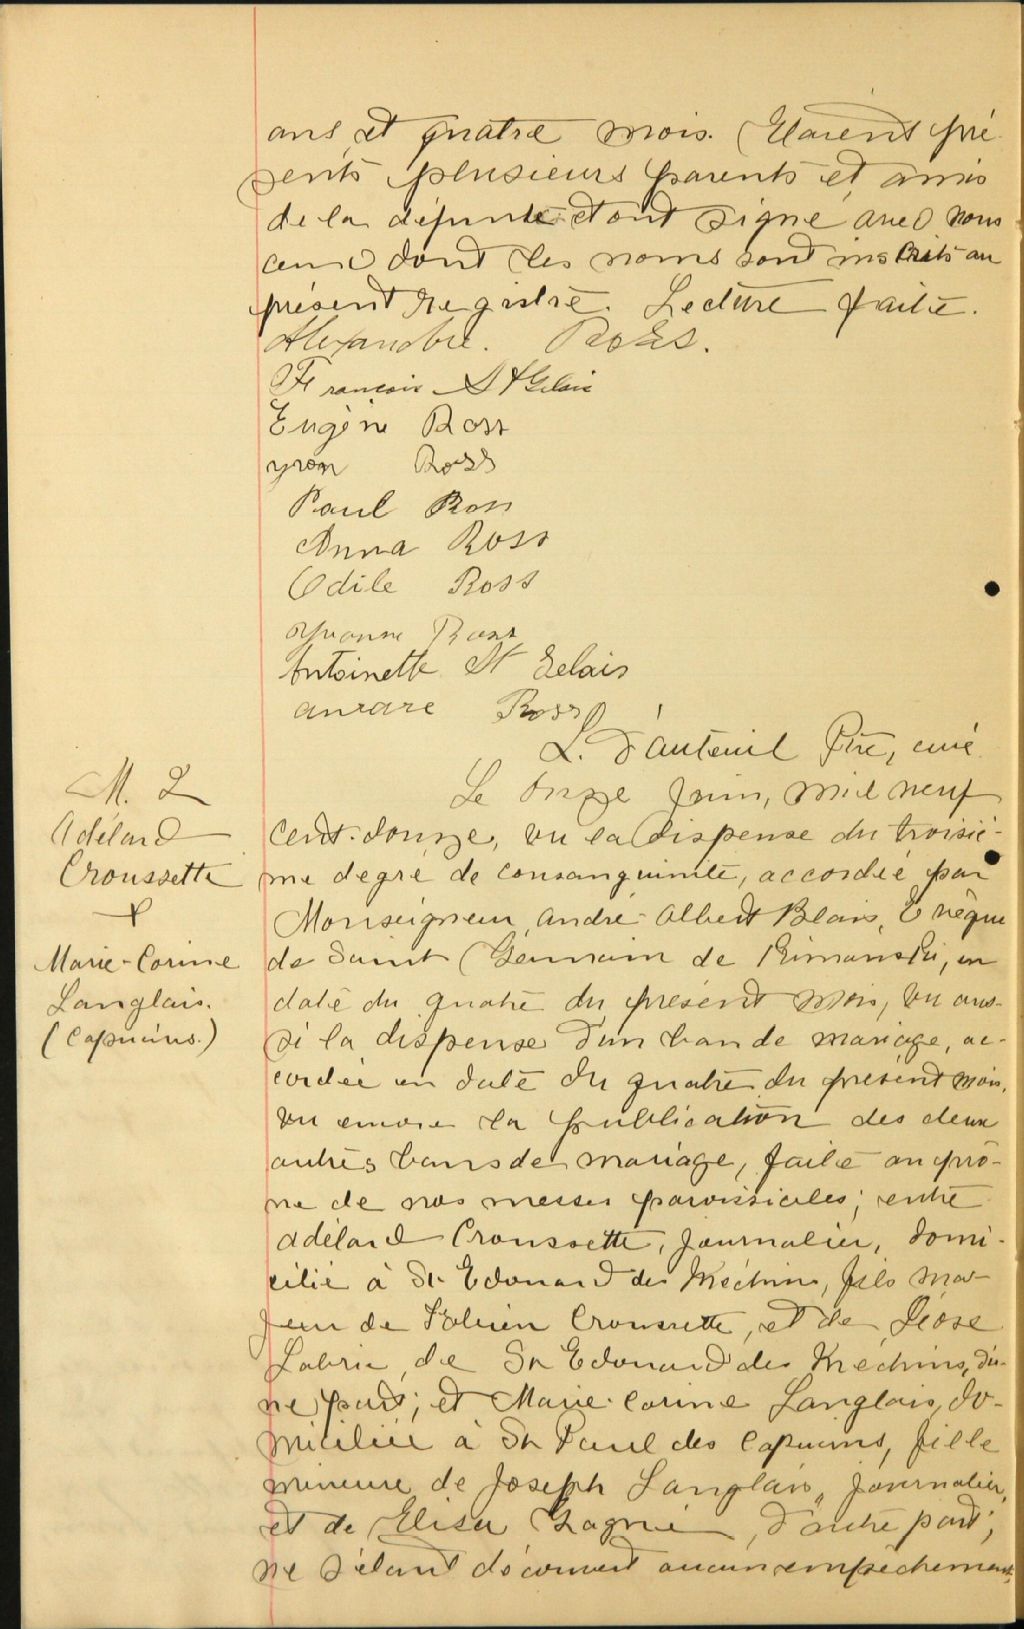 ans et quatre mois. Etaient pré-
sents plusieurs parents et amis
de la défunte dont signé avec nous
ceux dont les noms sont inscrits au
présent registre. Lecture faite.
Alexandre. Ross.
François St Gelais
Eugène Ross
yvon Ross
Paul Ross
Anna Ross
Odile Ross
yvonne Ross
Antoinette St Gelais
aurore Ross
L. D'auteuil Ptre, curé
M. 2
Adélard
Croussette
+
Marie-Corine
Langlais.
(Capucins.)
Le onze juin, mil neuf
cent-douze, vu la dispense du troisiè-
me degré de consanguinité, accordée par
Monseigneur André-Albert Blais, Evêque
de Saint Germain de Rimouski, en
date du quatre du présent mois, vu aus-
si la dispense d'un ban de mariage, ac-
cordée en date du quatre du présent mois,
vu encore la publication des deux
autres bans de mariage, faite au prô-
ne de nos messes paroissiales; entre
Adélard Croussette, journalier, domi-
cilié à St-Edouard des Méchins, fils ma-
jeur de Fabien Croussette, et de
Labrie, de St Edouard des Méchins, d'u-
ne part; et Marie-Corine Langlais, do-
miciliée à St Paul des Capucins, fille
mineure de Joseph Langlais, journalier,
et de Elisa Gagné, d'autre part;
ne s'étant découvert aucun empêchement,